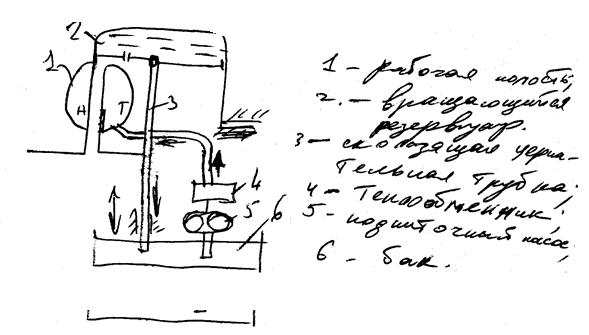 2
1
Н Т
3
4
5 6
1 - рабочая полость;
2. - вращающийся
резервуар.
3 - скользящая черпа-
тельная трубка;
4 - Теплообменник;
5 - подпиточный насос;
6 - бак.